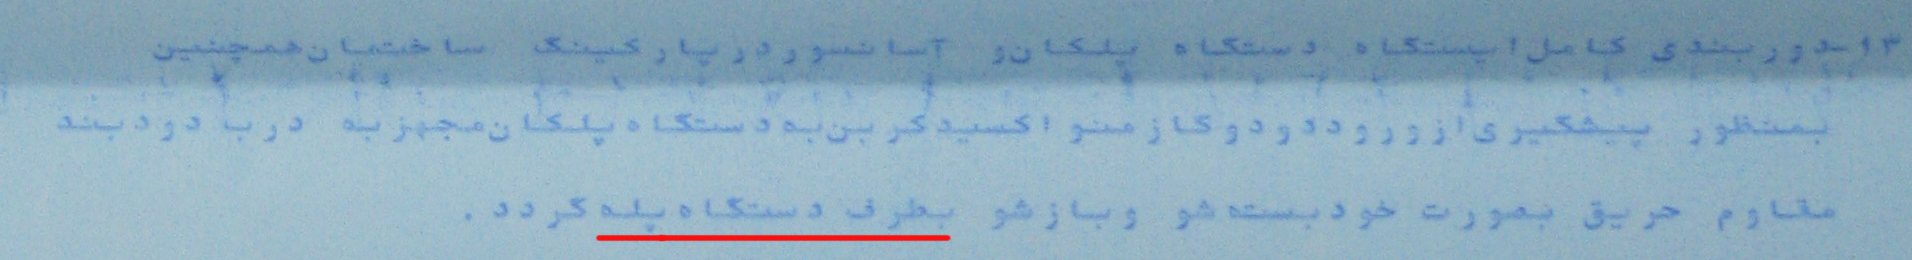 ۱۳-دوربندی کامل ایستگاه دستگاه پلکان و آسانسور در پارکینگ ساختمان همچنین
بمنظور پیشگیری از ورود دود و گاز منو اکسید کربن به دستگاه پلکان مجهز به درب دودبند
مقاوم حریق بصورت خود بسته شو و باز شو بطرف دستگاه پله گردد .